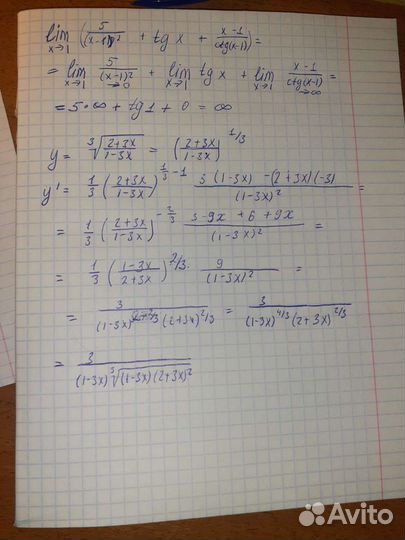 lim x→1 (5/(x-1)² + tg x + (x-1)/(ctg(x-1))) =
= lim x→1 5/(x-1)² →0 + lim x→1 tg x + lim x→1 (x-1)/(ctg(x-1)) →∞ =
= 5·∞ + tg 1 + 0 = ∞
y = ∛((2+3x)/(1-3x)) = ((2+3x)/(1-3x))^(1/3)
y' = 1/3 ((2+3x)/(1-3x))^(1/3 - 1) (3(1-3x) - (2+3x)(-3))/(1-3x)² =
= 1/3 ((2+3x)/(1-3x))^(-2/3) (3-9x+6+9x)/(1-3x)² =
= 1/3 ((1-3x)/(2+3x))^(2/3) · 9/(1-3x)² =
= 3/((1-3x) (2+3x)^(2/3)) = 3/((1-3x)^(4/3) (2+3x)^(2/3))
= 3/((1-3x) ∛((1-3x)(2+3x)²))
Avito